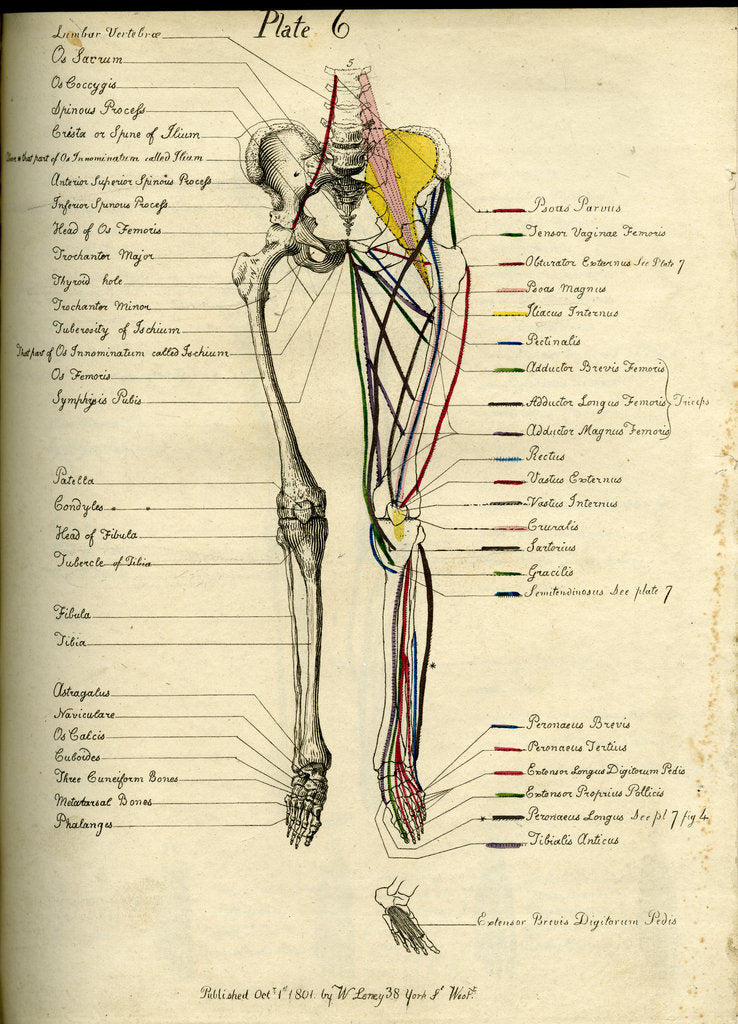 Plate 6
Lumbar Vertebræ
Os Sacrum
Os Coccygis
Spinous Process
Crista or Spine of Ilium
that part of Os Innominatum called Ilium
Anterior Superior Spinous Process
Inferior Spinous Process
Head of Os Femoris
Trochanter Major
Thyroid hole
Trochanter Minor
Tuberosity of Ischium
That part of Os Innominatum called Ischium
Os Femoris
Symphysis Pubis
Patella
Condyles
Head of Fibula
Tubercle of Tibia
Fibula
Tibia
Astragalus
Naviculare
Os Calcis
Cuboides
Three Cuneiform Bones
Metatarsal Bones
Phalanges
5
Psoas Parvus
Tensor Vaginae Femoris
Obturator Externus See Plate 7
Psoas Magnus
Iliacus Internus
Pectinalis
Adductor Brevis Femoris
Adductor Longus Femoris Triceps
Adductor Magnus Femoris
Rectus
Vastus Externus
Vastus Internus
Cruralis
Sartorius
Gracilis
Semitendinosus See plate 7
*
Peronaeus Brevis
Peronaeus Tertius
Extensor Longus Digitorum Pedis
Extensor Proprius Pollicis
* Peronaeus Longus See pl 7 fig 4
Tibialis Anticus
Extensor Brevis Digitorum Pedis
Published Octr. 1st 1801. by W Loney 38 York St